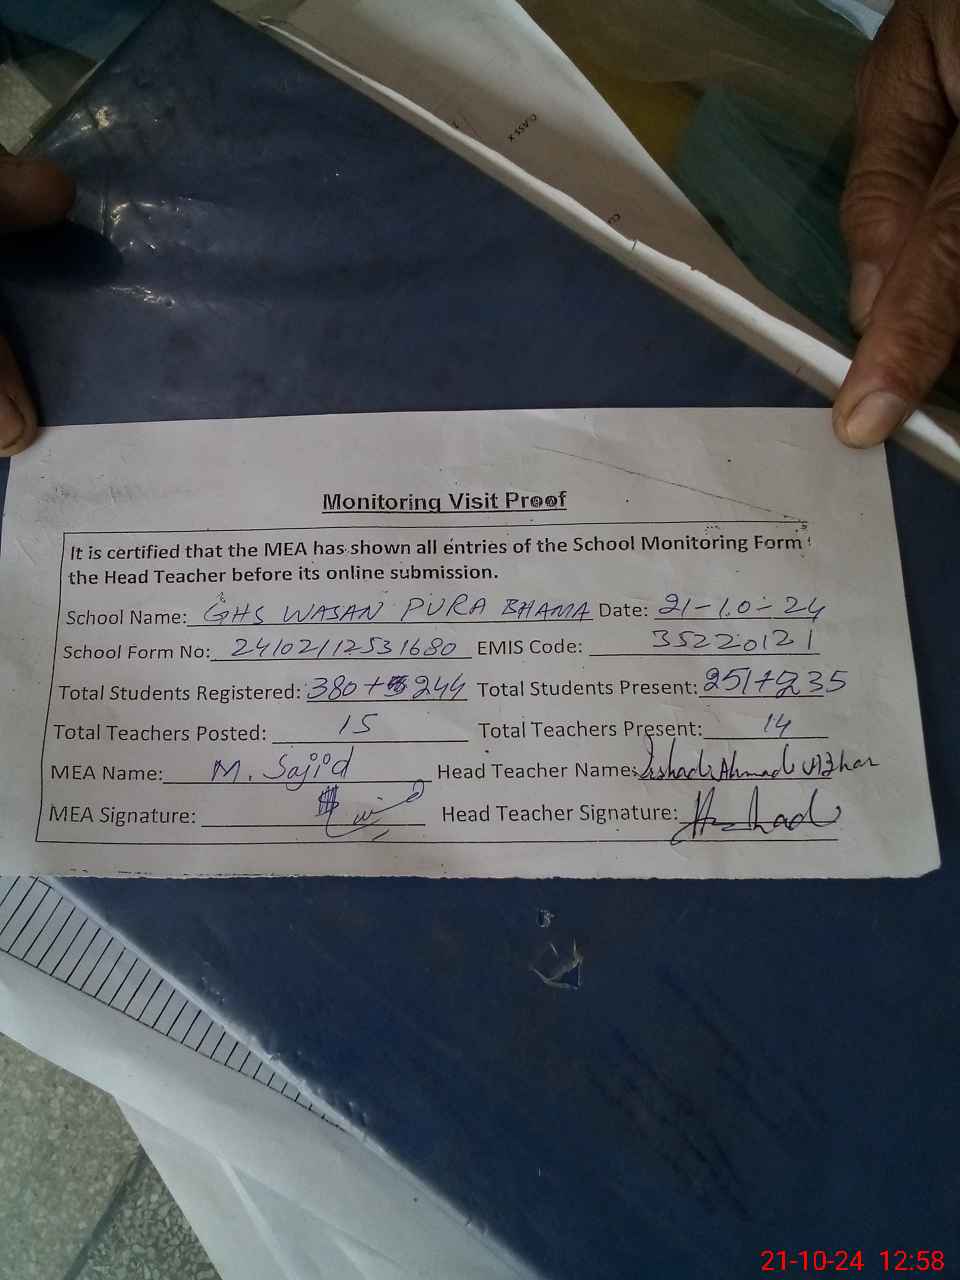 CLASS X
Monitoring Visit Proof
It is certified that the MEA has shown all entries of the School Monitoring Form
the Head Teacher before its online submission.
School Name: GHS WASAN PURA BHAMA Date: 21-10-24
School Form No: 24102112531680 EMIS Code: 35220121
Total Students Registered: 380+244 Total Students Present: 251+235
Total Teachers Posted: 15 Total Teachers Present: 14
MEA Name: M. Sajid Head Teacher Name: Irshad Ahmad Azhar
MEA Signature: Head Teacher Signature: Irshad
21-10-24 12:58